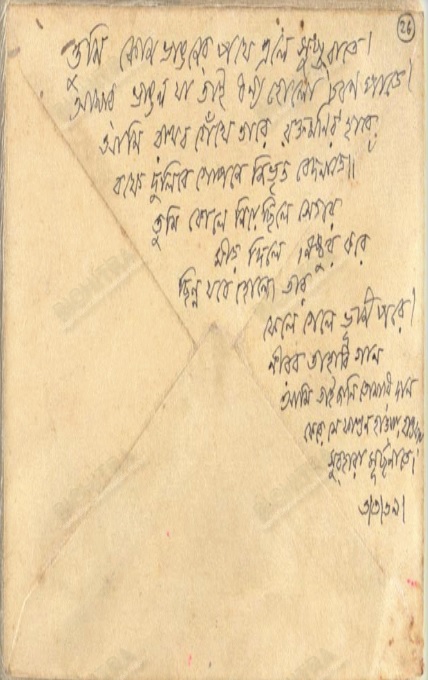 26
তুমি কোন ভাঙনের পথে এলে সুপ্তরাতে।
আমার ভাঙল যা তাই ধন্য হোলো চরণ পাতে।
আমি রাখব গেঁথে তারে রক্তমণির হারে
বক্ষে দুলিবে গোপনে নিভৃত বেদনাতে॥
তুমি কোলে নিয়েছিলে সেতার
মীড় দিলে নিষ্ঠুর করে
ছিন্ন যবে হোলো তার
ফেলে গেলে ভূমী পরে।
নীরব তাহারি গান
আমি তাই জানি তোমারি দান
ফেরে সে ফাল্গুন হাওয়ায় হাওয়ায়
সুরহারা মূর্ছনাতে।